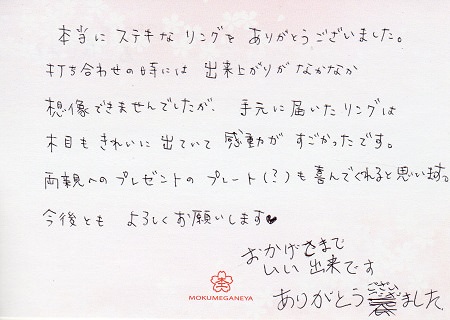 本当に ステキな リングを ありがとうございました。
打ち合わせの時には 出来上がりが なかなか
想像できませんでしたが、手元に届いたリングは
木目も きれいに 出ていて 感動が すごかったです。
両親へのプレゼントの プレート(?)も喜んでくれると思います。
今後とも よろしくお願いします♥
おかげさまで
いい 出来です
ありがとうございました
MOKUMEGANEYA